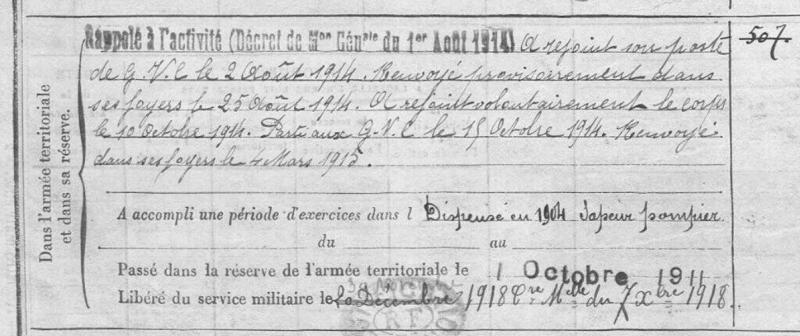 Rappelé à l'activité (Décret de Mon Génale du 1er Août 1914) A rejoint son poste
de G. V. C le 2 Août 1914. Renvoyé provisoirement dans
ses foyers le 25 Août 1914. A rejoint volontairement le corps
le 10 Octobre 1914. Parti aux G. V. C le 15 Octobre 1914. Renvoyé
dans ses foyers le 4 Mars 1915.
507.
Dans l'armée territoriale
et dans sa réserve.
A accompli une période d'exercices dans l Dispensé en 1904 Sapeur pompier.
du au
Passé dans la réserve de l'armée territoriale le 1 Octobre 1911
Libéré du service militaire le Décembre 1918 Cre Mlle du 7 Xbre 1918.
RF